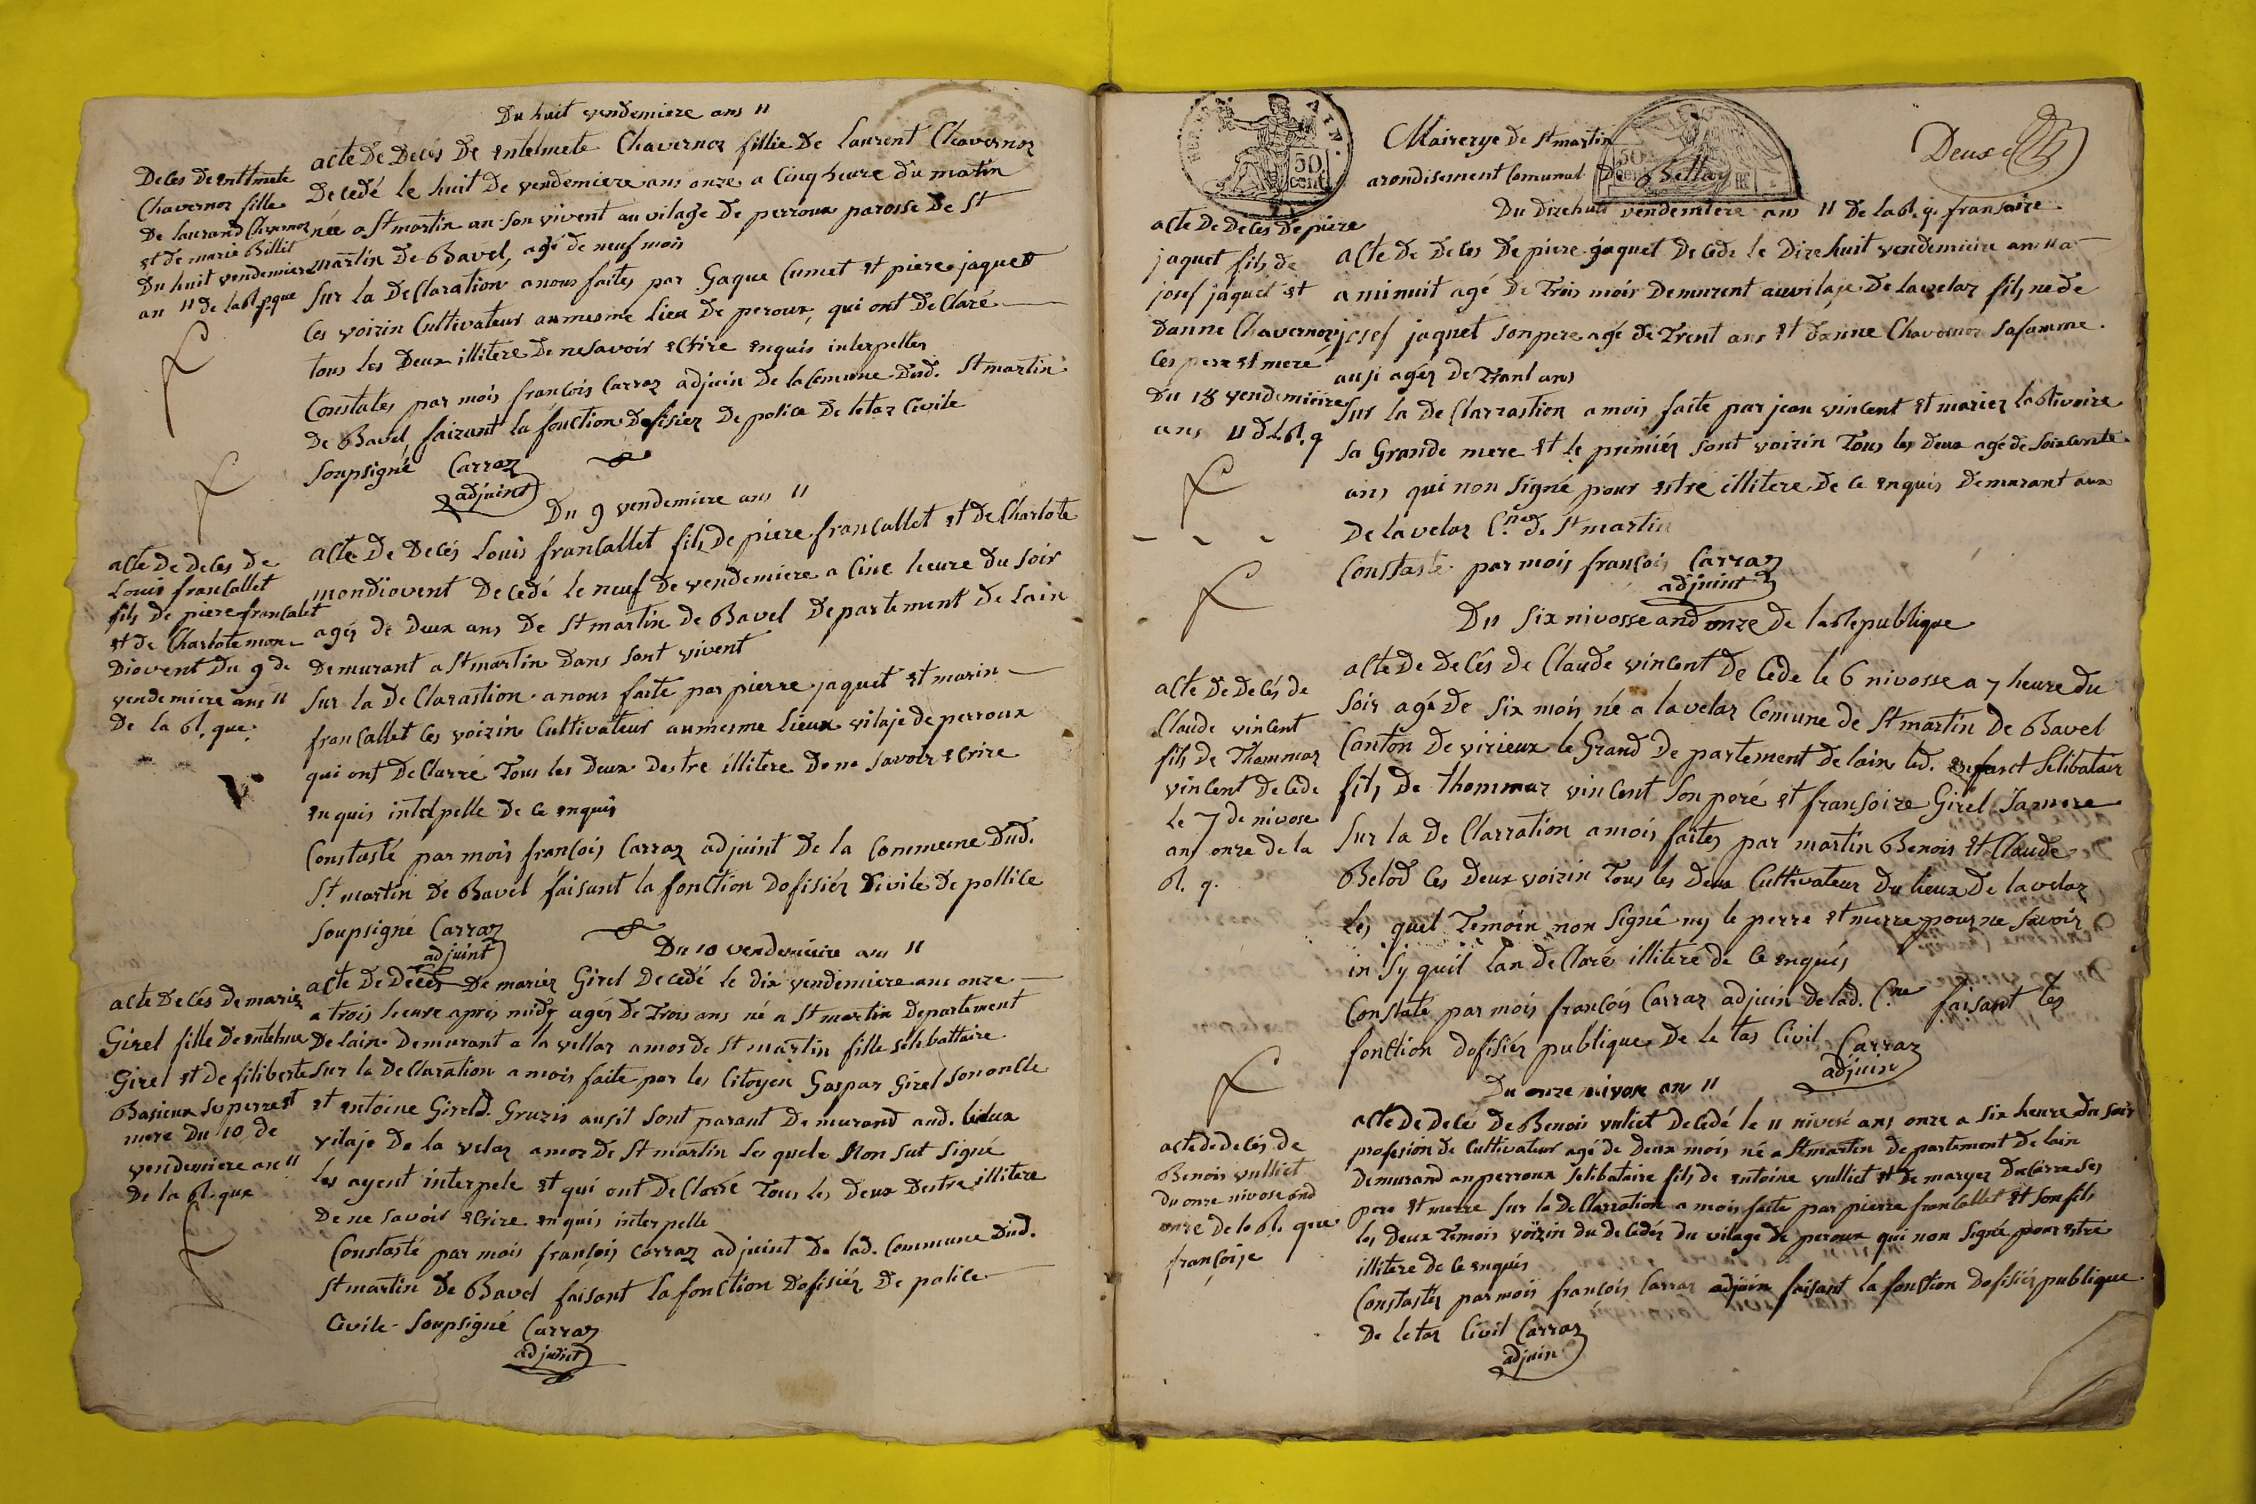 Du huit vendemiere ans 11
Deces de entelmete
Chavernoz fille
De laurand Chavernoz
et de marie Billiet
Du huit vendemiere
an 11 de la Rl. pque
acte De Decés De entelmete Chavernoz fillie De laurent Chavernoz
Decedé le huit De vendemiere ans onze a Cinq heure du matin
née a St martin an son vivent au vilage De perroux paroisse De St
martin De Bavel, agé de neuf mois
Sur la Declaration a nous faites par Gaque Cumet et piere jaquet
Ces voizin Cultivateur au mesme lieu De peroux, qui ont Declaré
tous les Deux illitere De ne savoir ecrire enquis interpelles
Constates par mois francois Carraz adjuin De la Comune Dud. St martin
de Bavel, faizant la fonction Dofisiez De police De letaz Civile
Soupsigné Carraz
adjuint
Du 9 vendemiere ans 11
acte De deces De
Louis francallet
fils de piere francalet
et de Charlote mon
Diovent Du 9 de
vendemiere ans 11
De la Rl. que
acte De Decés Louis francallet fils De piere francallet et De Charlote
mondiovent Decedé le neuf De vendemiere a Cinc heure Du Soir
agéz de Deux ans De St martin De Bavel Departement De Lain
Demurant a St martin Dans sont vivent
Sur la De Clarastion a nous faite par pierre jaquet et marin
francallet Ces voizin Cultivateur au mesme Lieux vilaje de perroux
qui ont De Clarré Tous les Deux Destre illitere De ne Savoir ecrire
enquis intelpelle De ce enquis
Constasté par mois francois Carraz adjuint De la Commune Dud.
St martin De Bavel faisant la fonction Dofisiéz Civile De pollice
Soupsigné Carraz
adjuint
Du 10 vendemiere an 11
acte Decés de mariez
Girel fille De entelme
Girel et de filiberte
Basieux Se perre et
mere Du 10 De
vendemiere an 11
De la Rl. que
acte De Deces De mariez Girel Decedé le dix vendemiere ans onze
a trois heure apris midy agéz De Trois ans né a St martin Departement
De lain Demurant a la vellaz amos de St martin fille selibattaire
Sur la Declaration a mois faite par les Citoyen Gaspar Girel Son oncle
et entoine Girel D. Gruzin ausit Sont parant De murand aud. lieux
vilaje De la velaz amos De St martin Les quele Non Sut Signé
Les ayent interpele et qui ont De Clarré Tous les Deux Destre illitere
De ne Savoir ecrire enquis interpelle
Constasté par mois francois Carraz adjuint De lad. Commune Dud.
St martin De Bavel faisant la fonction Dofisiéz De police
Civile Soupsigné Carraz
adjuint
50 cent
Mairerye De St martin
arondisement Comunal De Bellay
Deux
acte De Deces De piere
jaquet fils de
josef jaquet et
Danne Chavernoz
Ces pere et mere
Du 18 vendemiere
ans 11 D. L. Rl. q
Du Dizehuit vendemiere ans 11 De la Rl. q. fransaize
acte De Deces De piere jaquet Decede le Dizehuit vendemiere an 11 a
a minuit agé De Trois moir Demurent au vilaje De lavelaz fils ne de
josef jaquet son pere agé de Trent ans et danne Chavernoz Safamme
ausi agéz De Trant ans
Sur la De Clarrastion a mois faite par jean vincent et mariez
sa Grande mere et le premiér sont voizin Tous les Deux agé de Soixcente
ans qui non Signé pour estre illitere De ce enquis Demurant aux
De la velaz Cne d. St martin
Constasté par mois françois Carraz
adjuint
Du Six nivosse and onze De la Republique
acte De Decés de
Claude vincent
fils de Thommaz
vincent Decede
Le 7 de nivose
ans onze de la
Rl. q.
acte De Decés De Claude vincent De Cede le 6 nivosse a 7 heure du
Soir agé De Six mois né a lavelaz Comune De St martin De Bavel
Canton De virieux le Grand De partement De lain led. enfanct Selibataire
fils De thommaz vincent Son peré et fransoize Girel Samere
Sur la De Clarration a mois faites par martin Benois et Claude
Belod Ces Deux voizin Tous les Deux Cultivateur Du lieux De lavelaz
Les quel Temoin non Signé ny le perre et merre pour ne Savoir
in Sy quil Lan De Claré illiteré de Ce enquis
Constaté par mois francois Carraz adjuin De lad. Cne faisant les
fonction dofisiéz publique De le tas Civil Carraz
adjuin
Du onze nivose an 11
acte de decés de
Benois vulliet
du onze nivose and
onze De la Rl. que
françoise
acte De Decés De Benois vuliet Decedé le 11 nivosé ans onze a Six heure du Soir
profesion de Cultivateur agé de Deux mois né a St martin Departement De lain
Demurand au perroux Selibataire fils De entoine vulliet et De margez Ses
pere et merre Sur la De Clarration a mois faite par pierre francallet et Son fils
les Deux Temois voizin du Decedéz Du vilage De peroux qui non Signée pour estre
illitere de Ce enquis
Constastéz par mois francois Carraz adjuin faisant la fonction Dofisiéz publique
De le taz Civil Carraz
adjuin